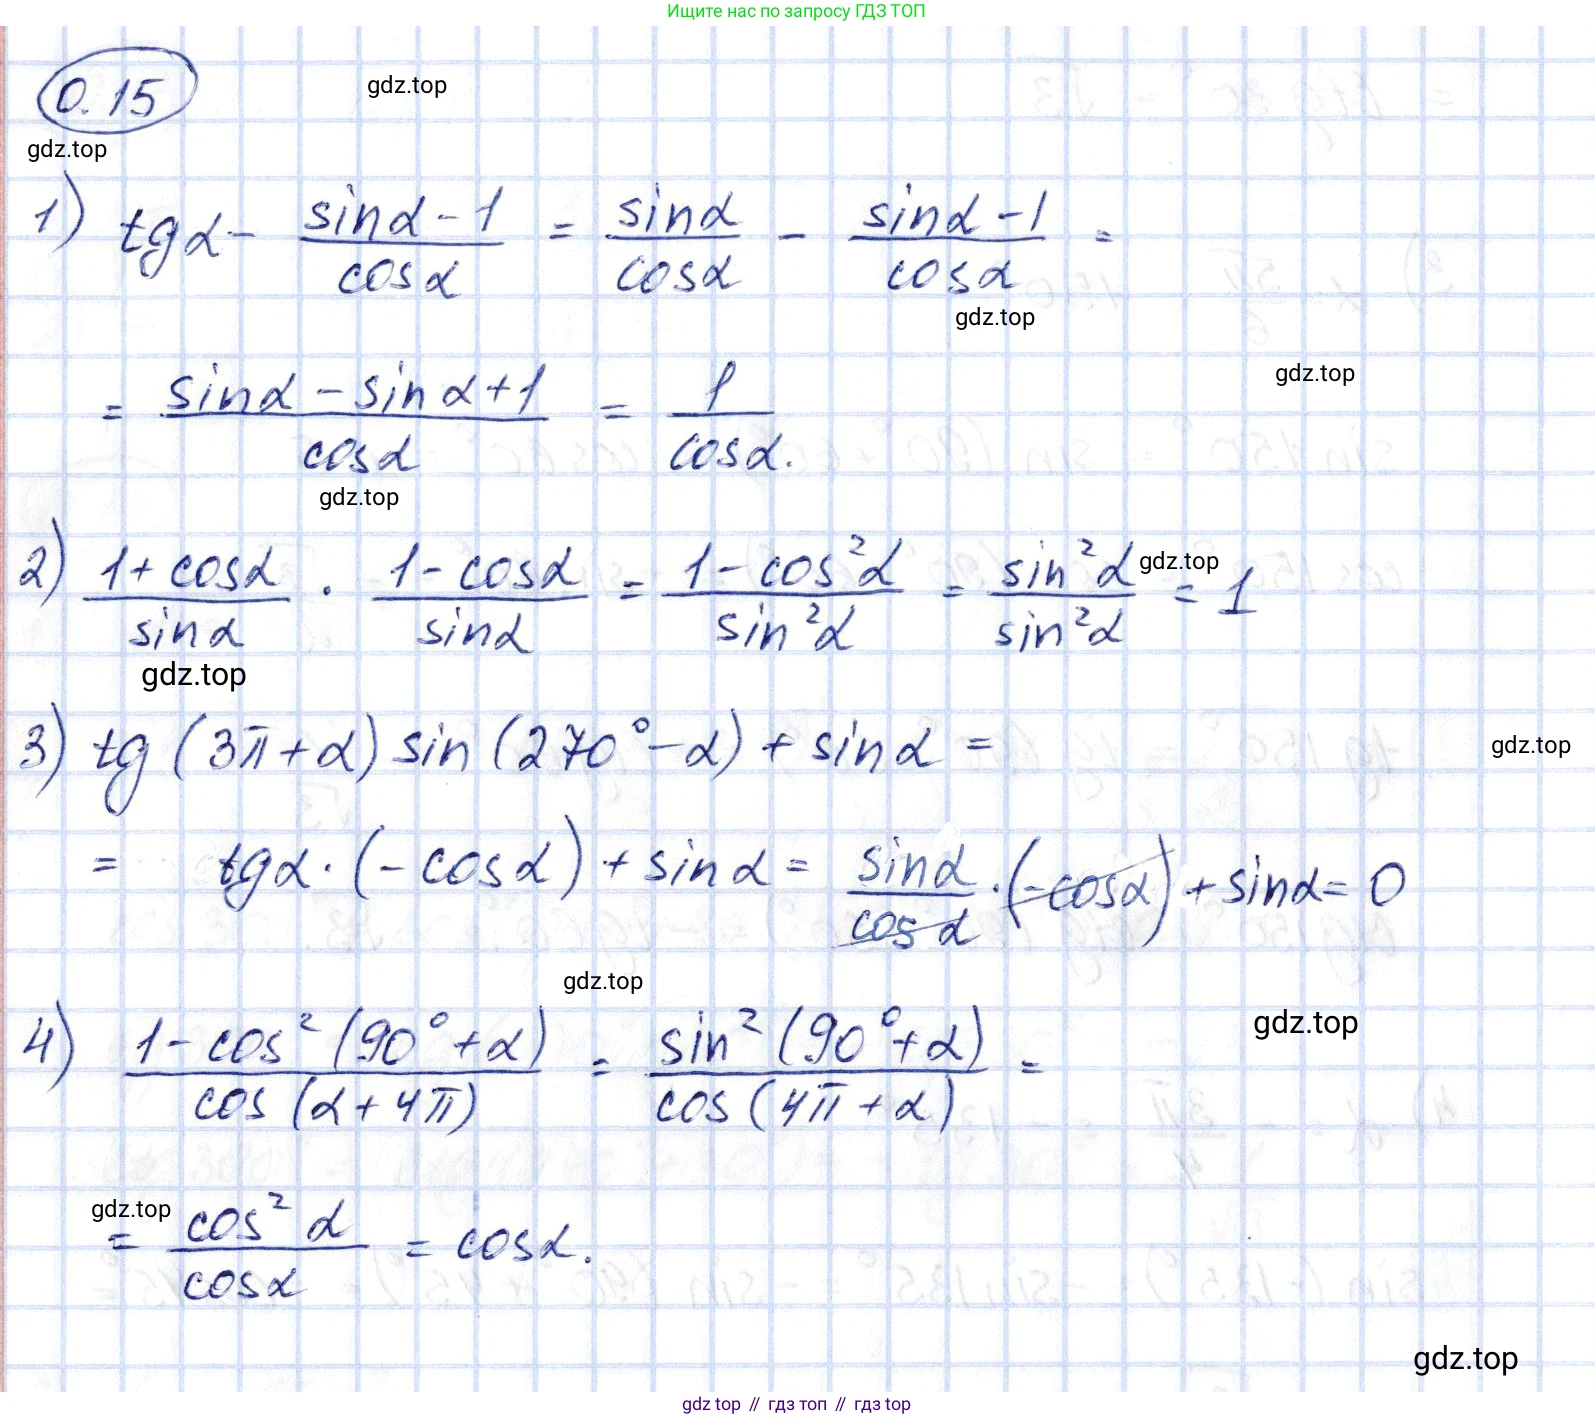 Ищите нас по запросу ГДЗ ТОП
0.15
gdz.top
gdz.top
1) tgα - (sinα - 1)/(cosα) = (sinα)/(cosα) - (sinα - 1)/(cosα) =
gdz.top
gdz.top
= (sinα - sinα + 1)/(cosα) = 1/(cosα).
gdz.top
2) (1 + cosα)/(sinα) · (1 - cosα)/(sinα) = (1 - cos²α)/(sin²α) = (sin²α)/(sin²α) = 1
gdz.top
gdz.top
3) tg(3π + α) sin(270° - α) + sinα =
gdz.top
= tgα · (-cosα) + sinα = (sinα)/(cosα) · (-cosα) + sinα = 0
gdz.top
gdz.top
4) (1 - cos²(90° + α))/(cos(α + 4π)) = (sin²(90° + α))/(cos(4π + α)) =
gdz.top
= (cos²α)/(cosα) = cosα.
gdz.top
gdz top // гдз топ // гдз top